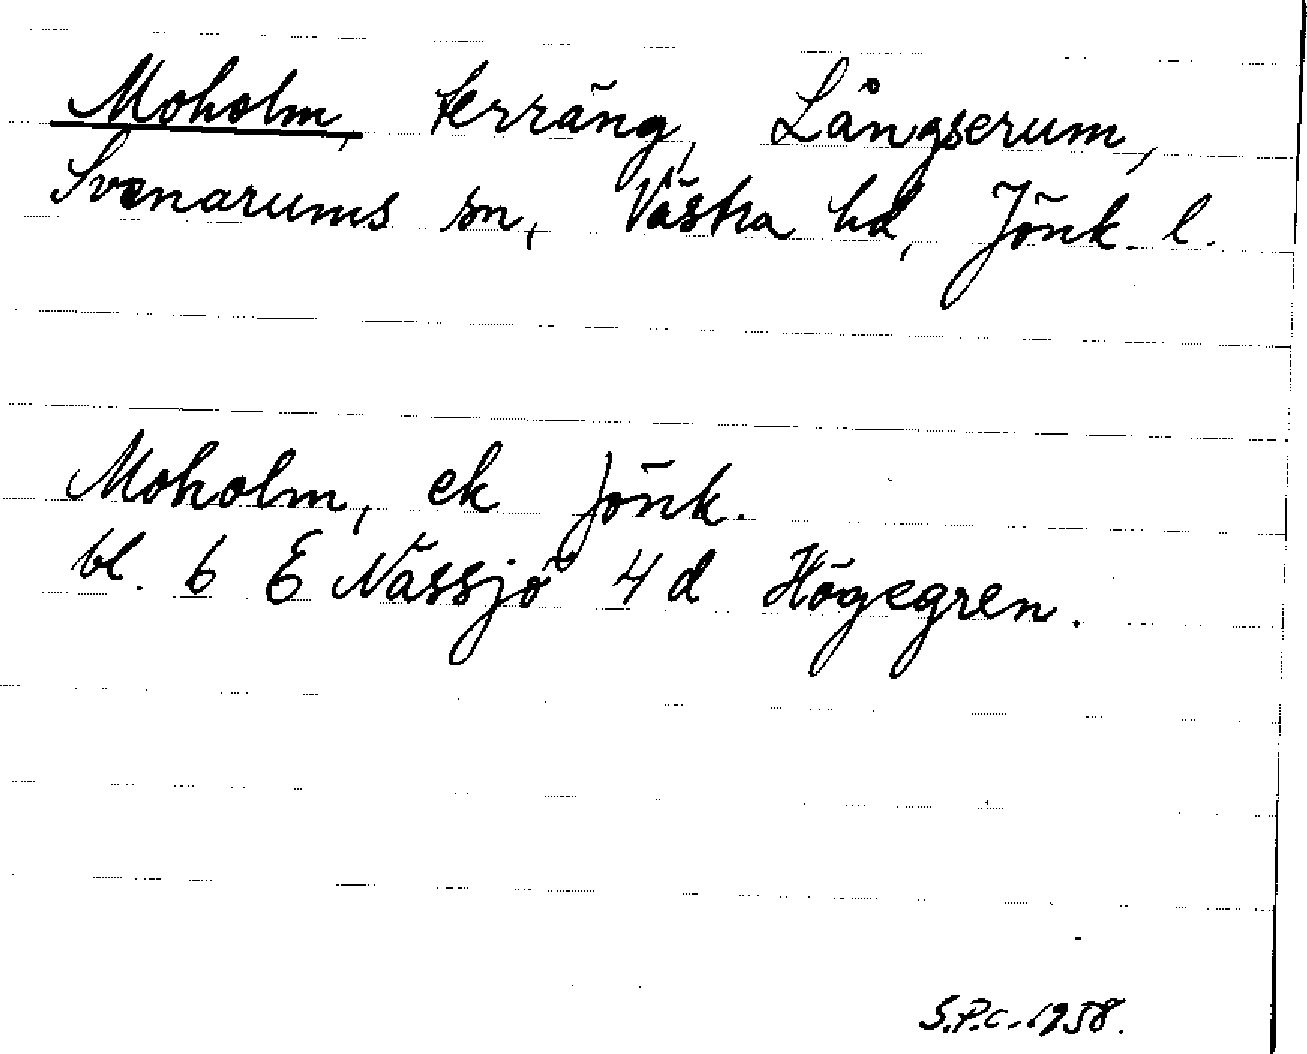 Moholm, terräng, Långserum,
Svenarums sn, Västra hd, Jönk. l.
Moholm, ek Jönk.
bl. 6 E Nässjö 4 d Högegren.
S.P.C. 1958.